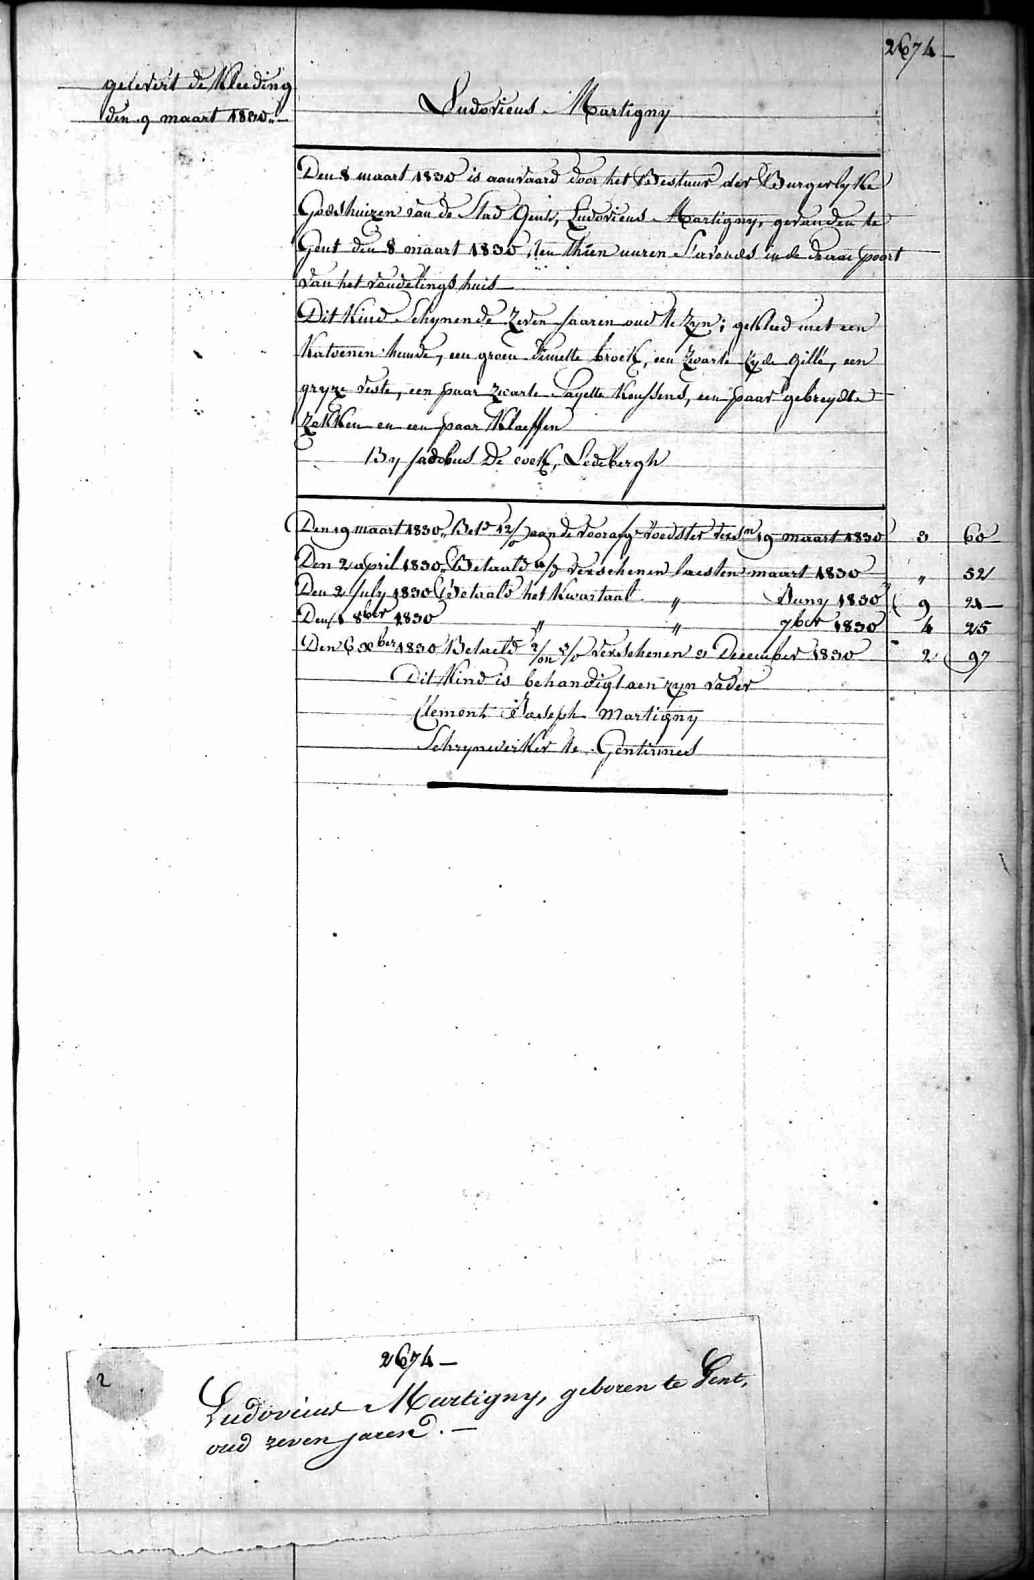 2674
gelevert de Kleeding
den 9 maart 1830„
Ludovicus Martigny
Den 8 maart 1830 is aanvaard door het Bestuur der Burgerlyke
Godshuizen van de Stad Gent, Ludovicus Martigny, gevonden te
Gent den 8 maart 1830, ten thien uuren S'avonds in de draai poort
van het vondelings huis
Dit Kind Schynende Zeven Jaaren oud te Zyn; gekleed met een
Katoenen hemde, een groen broek, een Zwarte Zyde Gillé, een
gryze veste, een paar zwarte Sayette Koussens, een paar gebreydde
Zokken en een paar Kloeffen
By Jacobus De cock, Ledebergh
Den 19 maart 1830 aan de voorafg. Voedster 19 maart 1830 3 60
Den 2 april 1830„ Betaald verschenen laesten maart 1830 „ 52
Den 2 July 1830 Betaald het Kwartaal „ Juny 1830 9 21
Den 1 8ber 1830 „ „ 7ber 1830 4 25
Den 6 Xber 1830 Betaeld verschenen 3 December 1830 2 97
Dit Kind is behandigt aen zyn vader
Clement Joseph Martigny
Schrynwerker te Gentinnes
2
2674
Ludovicus Martigny, geboren te Gent,
oud zeven jaren.